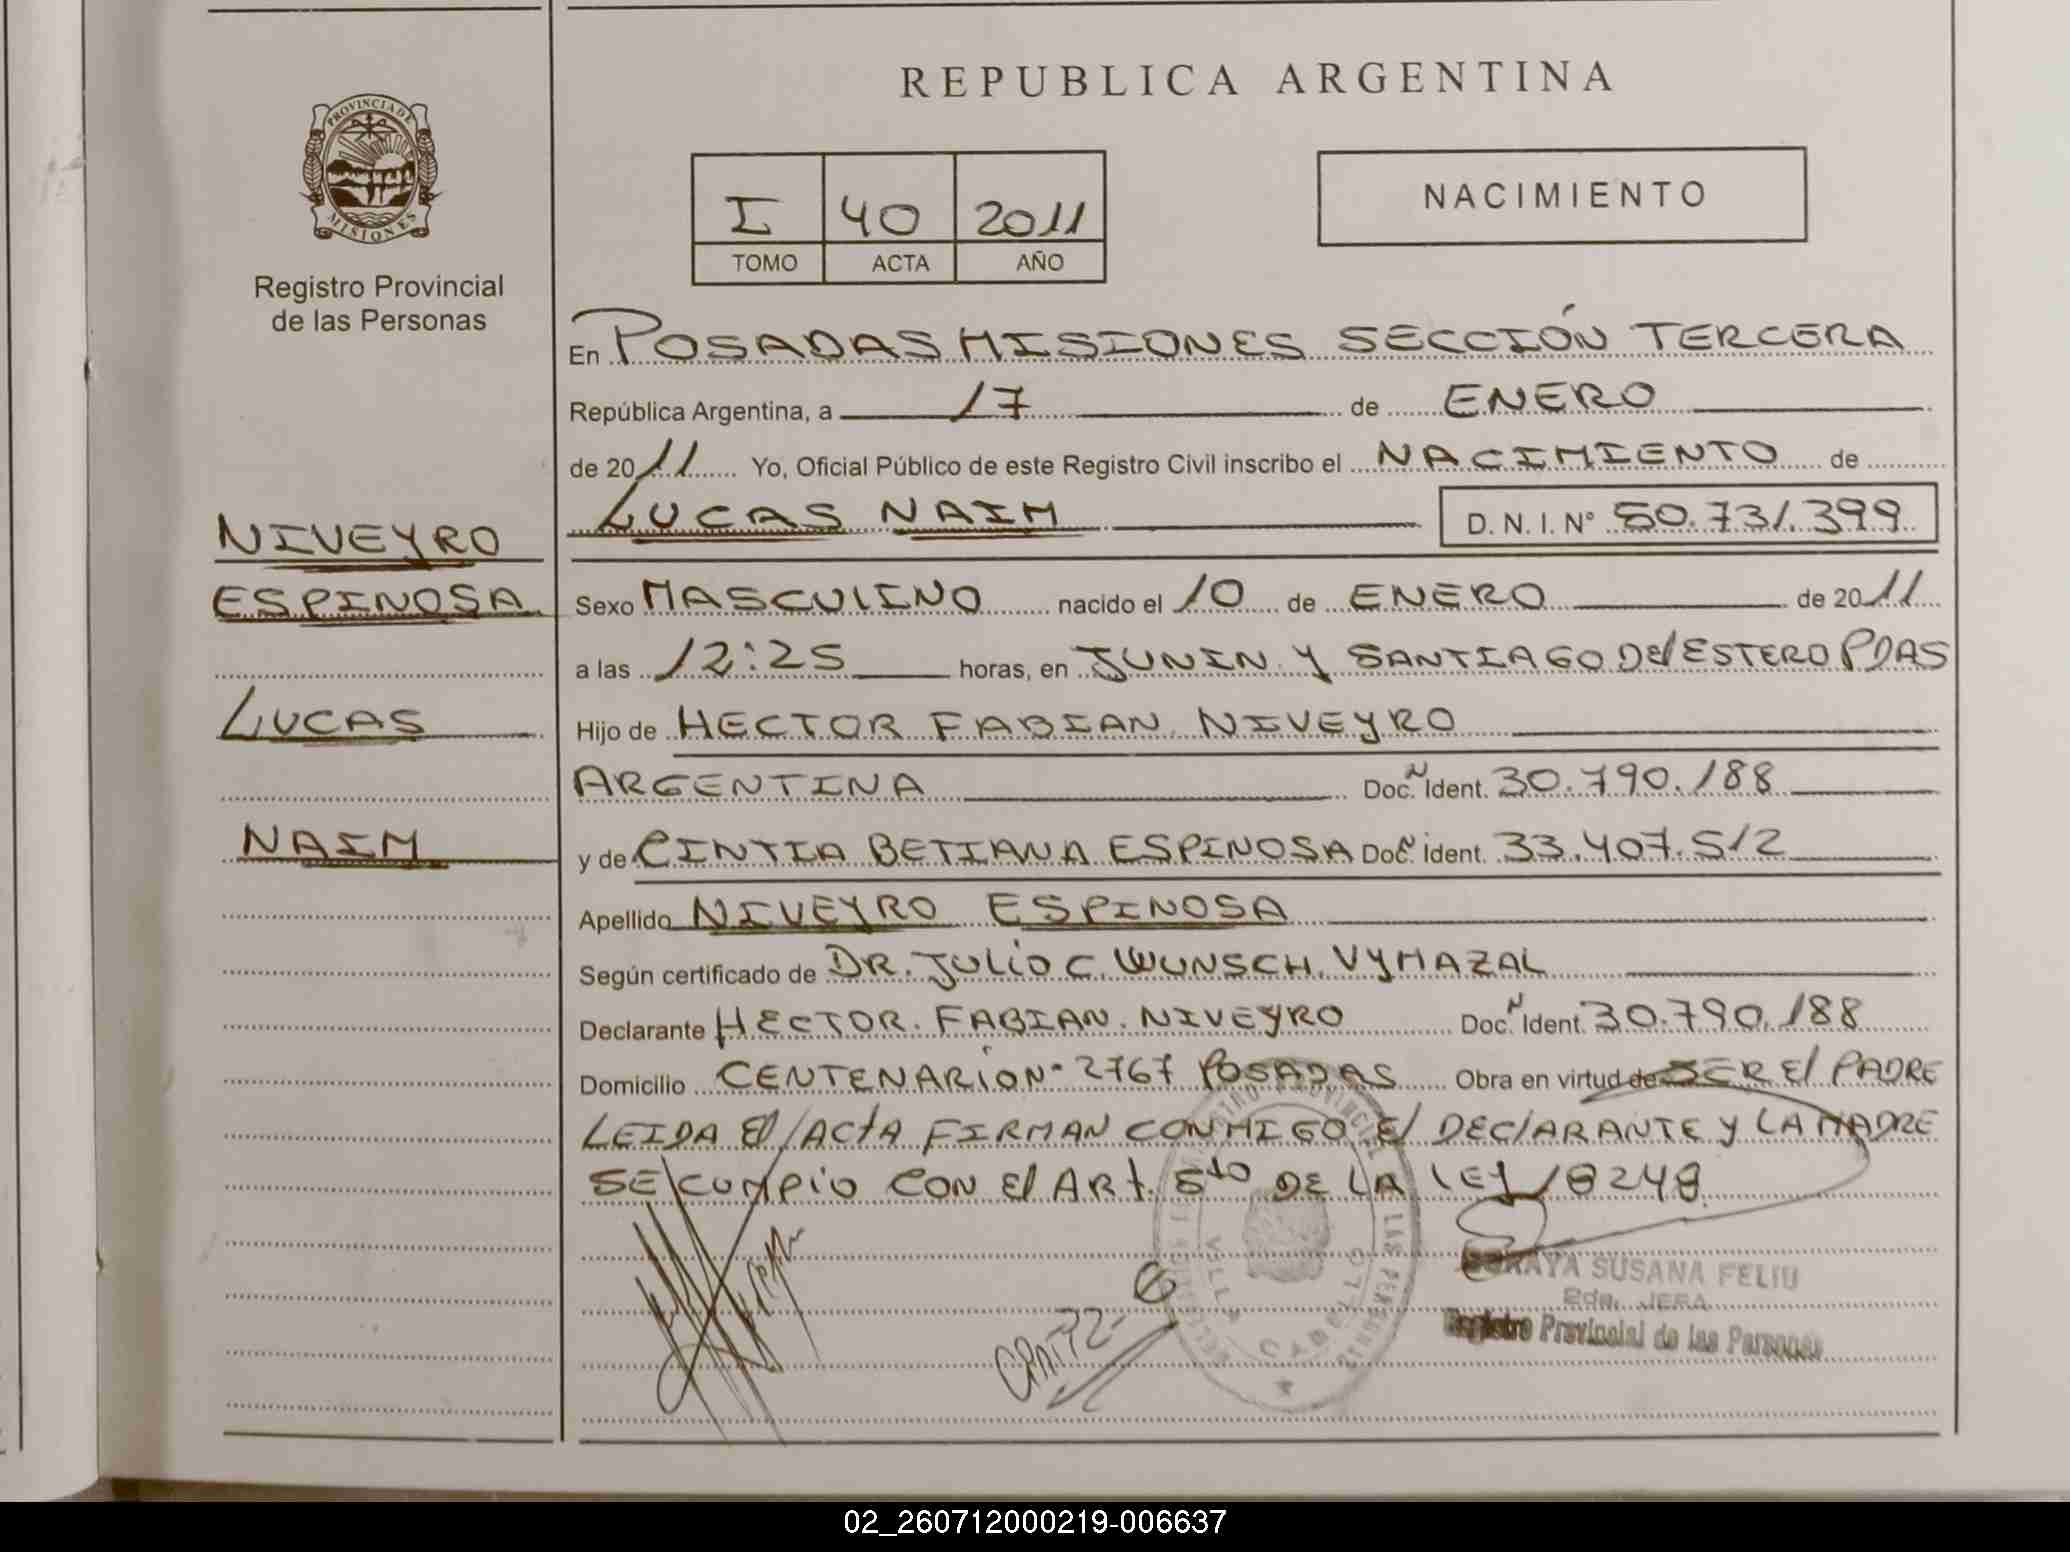 REPUBLICA ARGENTINA
PROVINCIA DE MISIONES
Registro Provincial
de las Personas
I 40 2011
TOMO ACTA AÑO
NACIMIENTO
En POSADAS MISIONES SECCIÓN TERCERA
República Argentina, a 17 de ENERO
de 2011 Yo, Oficial Público de este Registro Civil inscribo el NACIMIENTO de
LUCAS NAIM D. N. I. N° 50.731.399
NIVEYRO
ESPINOSA
LUCAS
NAIM
Sexo MASCULINO nacido el 10 de ENERO de 2011
a las 12:25 horas, en JUNIN Y SANTIAGO DEl ESTERO PDAS
Hijo de HECTOR FABIAN NIVEYRO
ARGENTINA Doc. Ident. 30.790.188
y de CINTIA BETIANA ESPINOSA Doc. Ident. 33.407.512
Apellido NIVEYRO ESPINOSA
Según certificado de DR. JULIO C. WUNSCH VYMAZAL
Declarante HECTOR FABIAN NIVEYRO Doc. Ident. 30.790.188
Domicilio CENTENARIO N° 2767 POSADAS Obra en virtud de SER El PADRE
LEIDA El ACTA FIRMAN CONMIGO El DEClARANTE Y LA MADRE
SE CUMPlIO CON El ARt. 5to DE LA lEY 18248
VILLA CABELLO
SORAYA SUSANA FELIU
2da. JEFA
Registro Provincial de las Personas
02_260712000219-006637